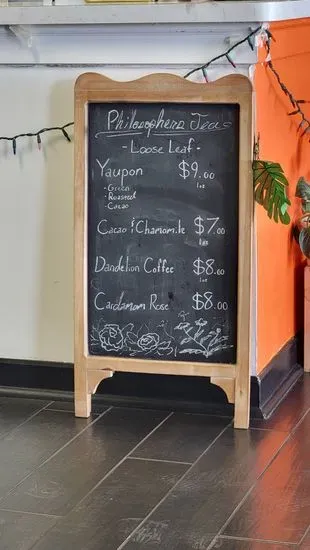 Philosophers Teas
- Loose Leaf -
Yaupon $9.00
1oz
- Green
- Roasted
- Cacao
Cacao & Chamomile $7.00
1oz
Dandelion Coffee $8.00
1oz
Cardamom Rose $8.00